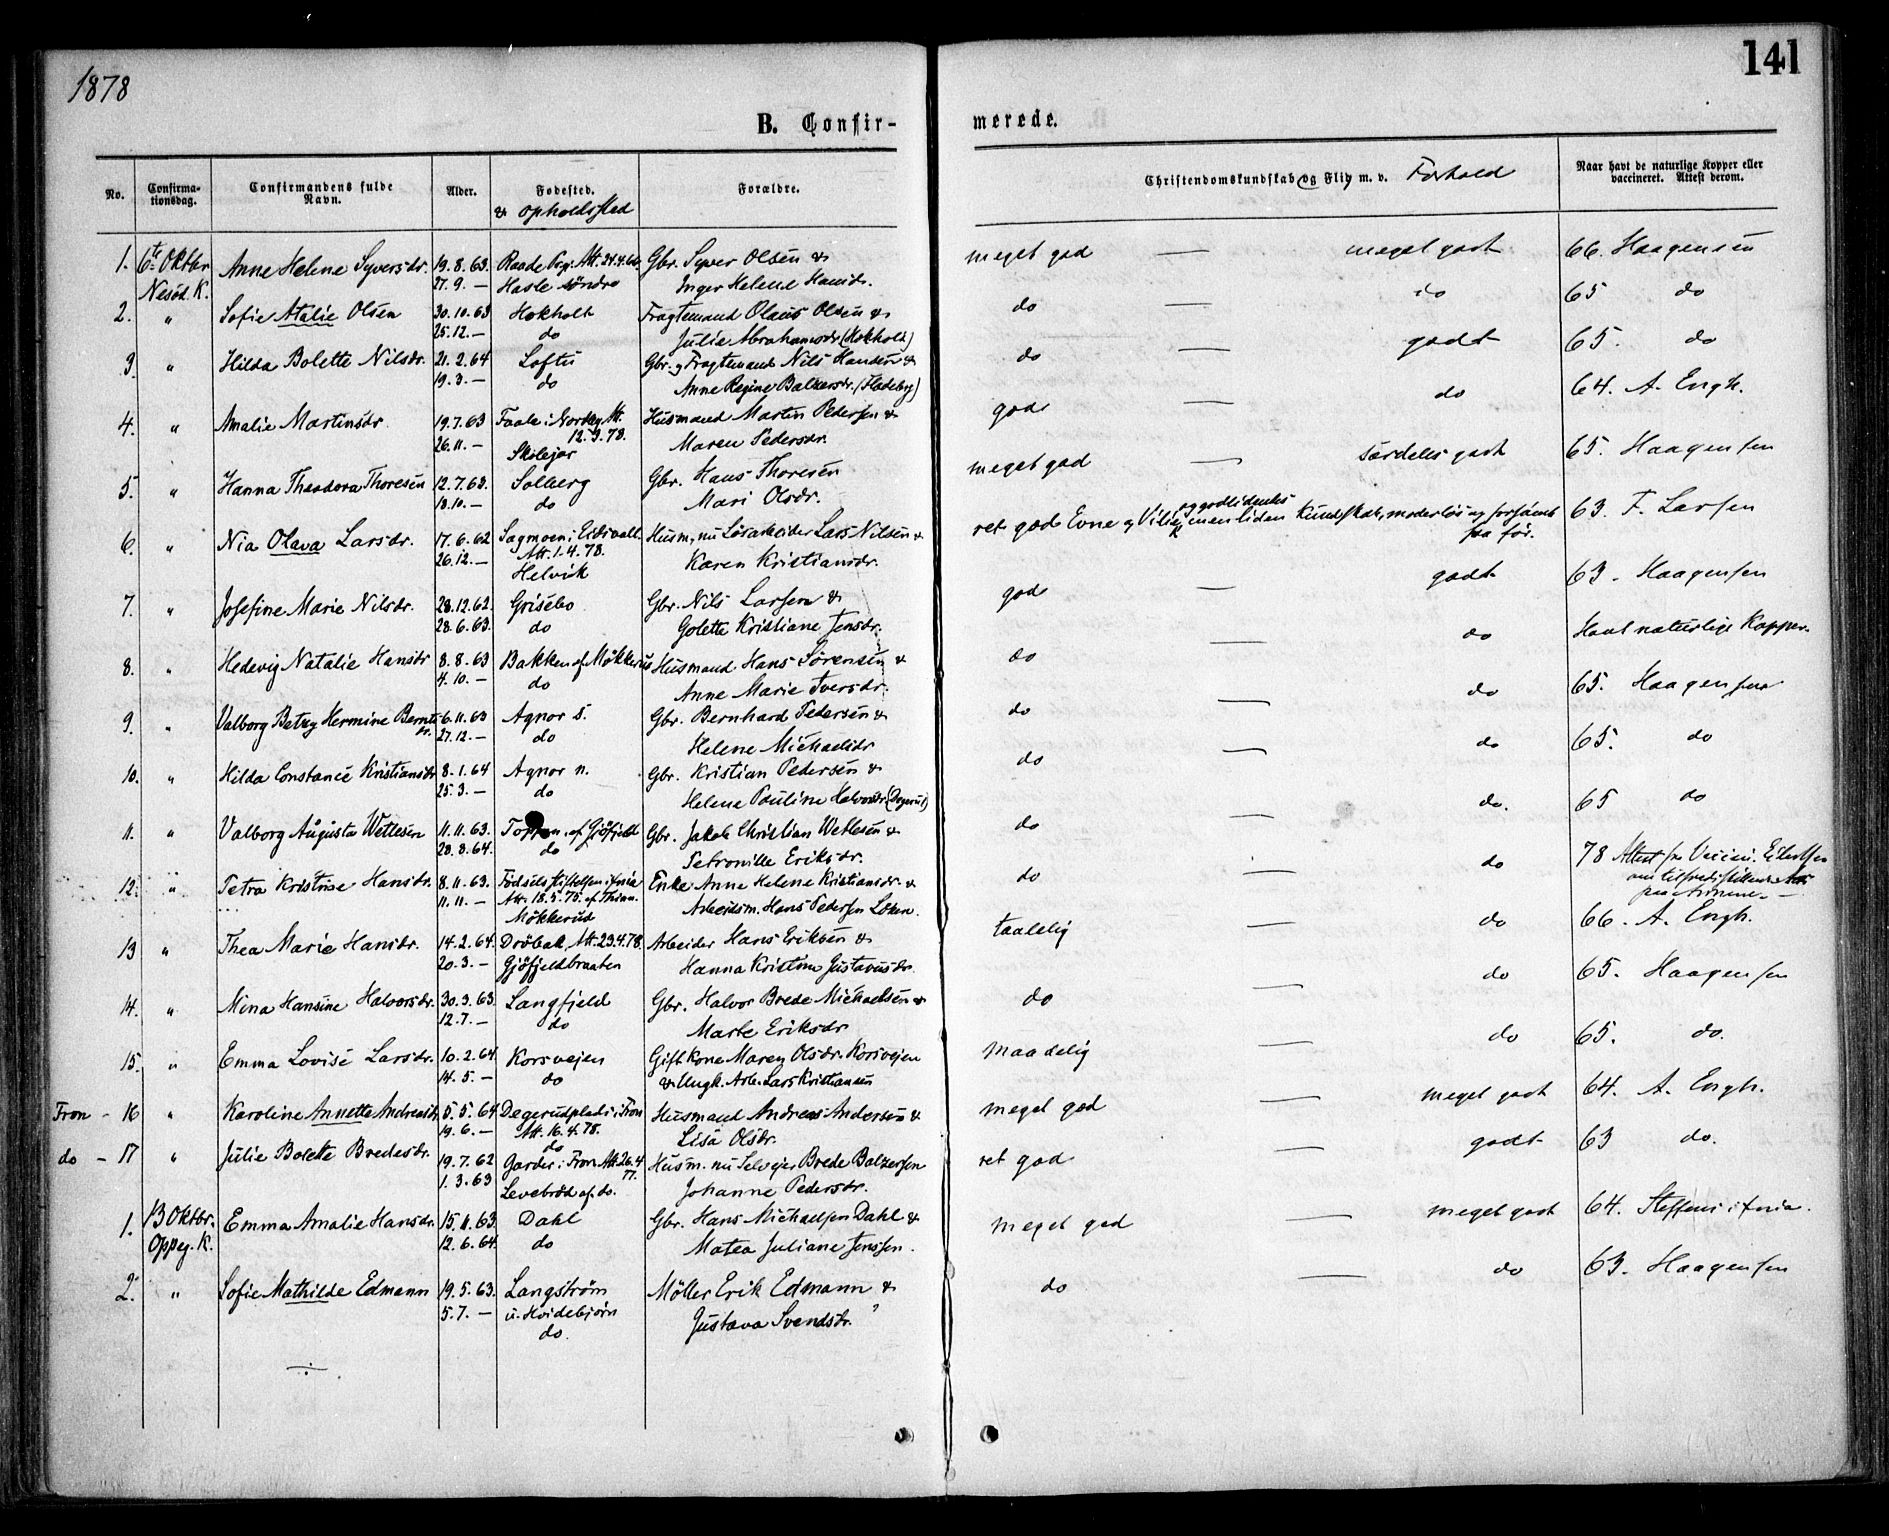 1878
141
B. Confir-
merede.
No.
Confirma-
tionsdag.
Confirmandens fulde
Navn.
Alder.
Fødested.
& Opholdssted
Forældre.
Christendomskundskab og Flid m. v. Forhold
Naar havt de naturlige Kopper eller
vaccineret. Attest derom.
1. 6te Oktbr. Anne Helene Syversdr. 19.8.63. Raade Att. 24.4.66. Gbr. Syver Olsen & meget god — meget godt 66. Haagensen
Nesod. K. 27.9. — Hasle söndre Inger Helene Hansdr.
2. " Sofie Atalie Olsen 30.10.63 Hokholt Fragtemand Olaus Olsen & do — do 65 do
25.12. — do Julie Abrahamsdr. (Hokholt)
3. " Hilda Bolette Nilsdr. 21.2.64 Loftu Gbr. og Fragtemand Nils Hansen & do — godt 65. do
19.3. — do Anne Regine Balzersdr. (Fladeby)
4. " Amalie Martinsdr. 19.7.63 Faale i Nordby Att. Husmand Martin Pedersen & god — do 64. A. Engh.
26.11. — 12.3.78. Maren Pedersdr.
Skilejor
5. " Hanna Theodora Thoresen 12.7.63. Solberg Gbr. Hans Thoresen meget god — særdeles godt 65. Haagensen
18.10. — do Mari Olsdr.
6. " Nia Olava Larsdr. 17.6.62 Sagmoen i Eidsvold. Husm, nu Lösarbeider Lars Nilsen & ret god Evne og Vilie og godlidende men liden Kundskab, moderlös og forsömt 63. F. Larsen
26.12. — Att. 1.4.78. Karen Kristiansdr. paa för.
Helvik
7. " Josefine Marie Nilsdr. 28.12.62. Grisebo Gbr. Nils Larsen & god — godt 63. Haagensen
28.6.63. do Golette Kristiane Jensdr.
8. " Hedevig Natalie Hansdr 8.8.63 Bakken af Mökkerus Husmand Hans Sörensen & do — do Havt naturlige Kopper.
4.10. — do Anne Marie Iversdr.
9. " Valborg Betzy Hermine Bernts- 6.11.63 Agnor s. Gbr. Bernhard Pedersen & do — do 65. Haagensen
dr. 27.12. — do Helene Michaelsdr
10. " Hilda Constance Kristiansdr 8.1.64 Agnor n. Gbr. Kristian Pedersen & do — do 65. do
25.3. — do Helene Pauline Halvorsdr. (Dogerud)
11. " Valborg Augusta Wetlesen 11.11.63. Toppen af Gjöfjeld Gbr. Jakob Christian Wetlesen & do — do. 65 do
28.8.64. do Petronille Eriksdr.
12. " Petra Kristine Hansdr. 8.11.63. Födselsstiftelsen i Xnia Enke Anne Helene Kristiansdr. & do — do 78 Attest fra
11.11. — Att. 18.5.75. af Arbeidsm. Hans Pedersen Löken.
Mökkerud
13 " Thea Marie Hansdr. 14.2.64. Dröbak, Att. 23.4.78. Arbeider Hans Eriksen & taalelig — do 66. A. Engh.
20.3. — Gjöfjeldbraaten Hanna Kristine Gustavusdr.
14. " Mina Hansine Halvorsdr. 30.3.63. Langfjeld Gbr. Halvor Brede Michaelsen & do — do 65. Haagensen
12.7. — do Marte Eriksdr
15. " Emma Lovise Larsdr. 10.2.64. Korsvejen Gift Kone Maren Olsdr. Korsvejen maadelig — do 65. do.
14.5. — do & Ungk. Arb. Lars Kristiansen
Fron - 16 " Karoline Annette Andreasdr. 5.5.64. Degerudplads i Fron Husmand Andreas Andersen & meget god — meget godt 64. A. Engh.
19.6. — Att. 16.4.78. Lisa Olsdr.
do
do - 17 " Julie Bolette Bredesdr. 19.7.62 Garder i Fron Att. 26.4 Husm. nu Selvejer Brede Balzersen ret god — godt 63 do.
1.3.63 77. Johanne Pedersdr.
Levebrød af do.
1. 13 Oktbr. Emma Amalie Hansdr. 15.11.63. Dahl Gbr. Hans Michaelsen Dahl & meget god — meget godt 64. Steffens i Xnia.
Oppeg. K. 12.6.64. do Matea Juliane Jenssen.
2. " Sofie Mathilde Edmann 19.5.63. Langström Möller Erik Edmann & do — do 63. Haagensen
5.7. — u. Hvidebjörn Gustava Svendsdr.
do.